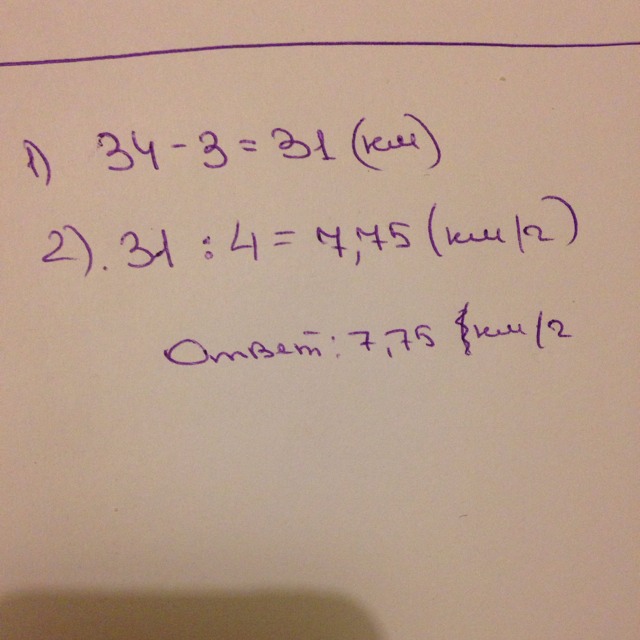 1) 34 - 3 = 31 (км)
2). 31 : 4 = 7,75 (км/г)
Ответ: 7,75 км/г